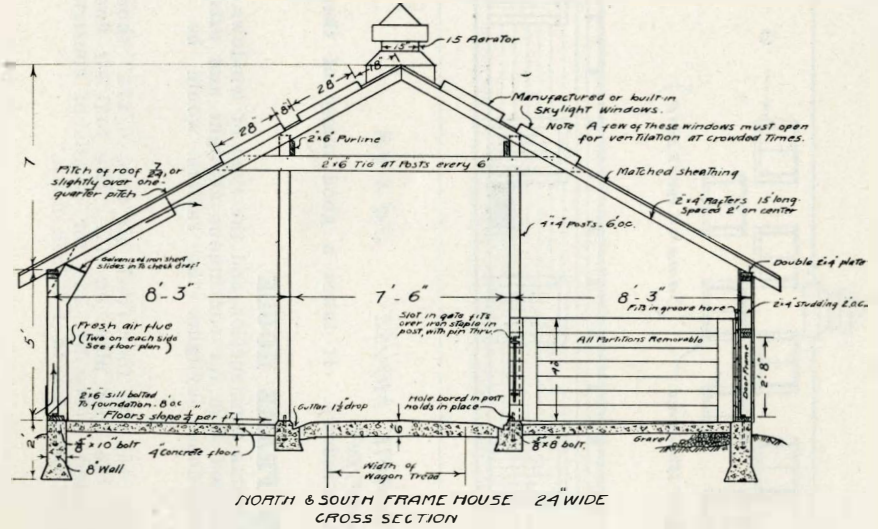 15"
15 Aerator
18"
28"
8"
28"
Manufactured or built-in
Skylight windows.
Note A few of these windows must open
for ventilation at crowded times.
2"x6" Purline
2"x6" Tie at Posts every 6'
7
Pitch of roof 7/24, or
slightly over one-
quarter pitch
Matched sheathing
2"x4" Rafters 15' long
Spaced 2' on center
4"x4" Posts - 6' O.C.
Galvanized iron sheet
slides in to check draft
Double 2"x4" plate
8'-3"
7'-6"
8'-3"
Fits in groove here
2"x4" studding 2' o.c.
Slot in gate fits
over iron staple in
post, with pin thru.
5'
Fresh air flue
(Two on each side
See floor plan)
All Partitions Removable
Door Frame
2'-8"
2"x6" sill bolted
To foundation - 8' o.c.
Floors slope 1/4" per ft.
Gutter 1 1/2" drop
Hole bored in post
holds in place
2'
x10" bolt
8" Wall
4" Concrete floor
6"
x8" bolt.
Gravel
Width of
Wagon Tread
NORTH & SOUTH FRAME HOUSE 24" WIDE
CROSS SECTION